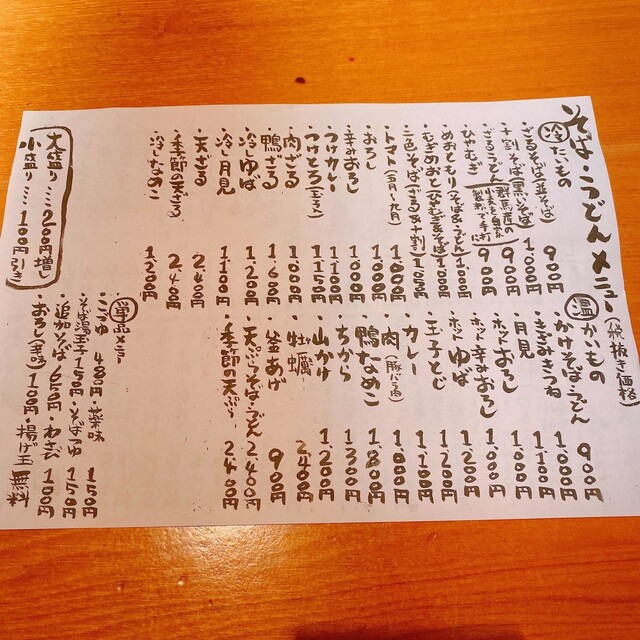 そば・うどんメニュー(税抜き価格)
冷たいもの
・ざるそば(並そば) 900円
・十割そば(黒いそば) 1.000円
・ざるうどん(群馬産の小麦を自家製粉で手打) 900円
・ひやむぎ 900円
・めおともり(そば&うどん) 1.000円
・むぎめおと(ひやむぎ&そば) 1.050円
・二色そば(ざる&十割) 1.050円
・トマト(五月~九月) 1.000円
・おろし 1.000円
・辛みおろし 1.000円
・つけカレー 1.100円
・つけとろ 1.150円
・肉ざる 1.000円
・鴨ざる 1.600円
・冷しゆば 1.200円
・冷し月見 1.100円
・天ざる 2.400円
・季節の天ざる 2.400円
・冷しなめこ 1.200円
大盛り ミミ 200円増
小盛り ミミ 100円引き
温かいもの
・かけそば・うどん 900円
・きざみきつね 1.000円
・月見 1.000円
・ホットおろし 1.000円
・ホット辛みおろし 1.000円
・ホットゆば 1.200円
・玉子とじ 1.100円
・カレー 1.100円
・肉(豚ばら肉) 1.000円
・鴨なめこ 1.800円
・ちから 1.300円
・山かけ 1.200円
・牡蠣 2.400円
・釜あげ 900円
・天ぷらそば・うどん 2.400円
・季節の天ぷら 2.400円
単品メニュー
400円・薬味 150円
150円・そばつゆ 150円
・追加そば 650円・わさび 100円
・おろし(辛味) 100円 揚げ玉 無料